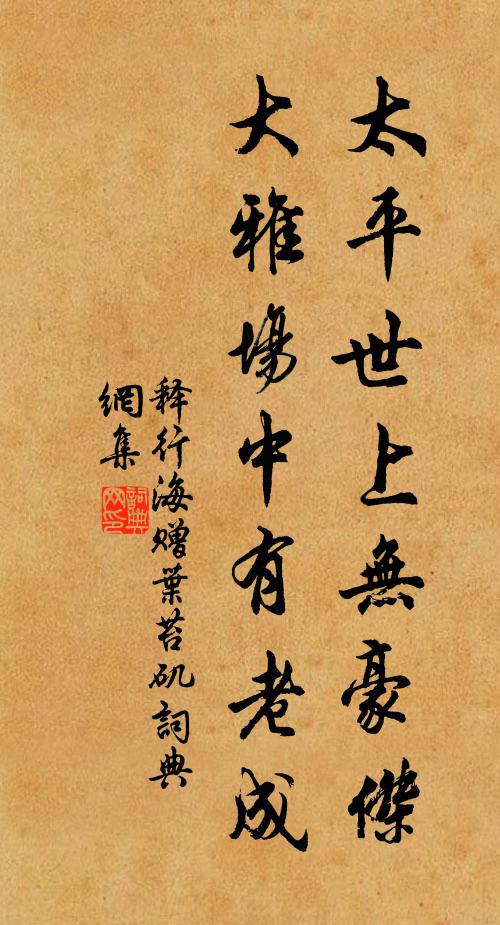 太平世上無豪傑
大雅場中有老成
释行海赠葉苔矶詞典
網集
詞典
网印